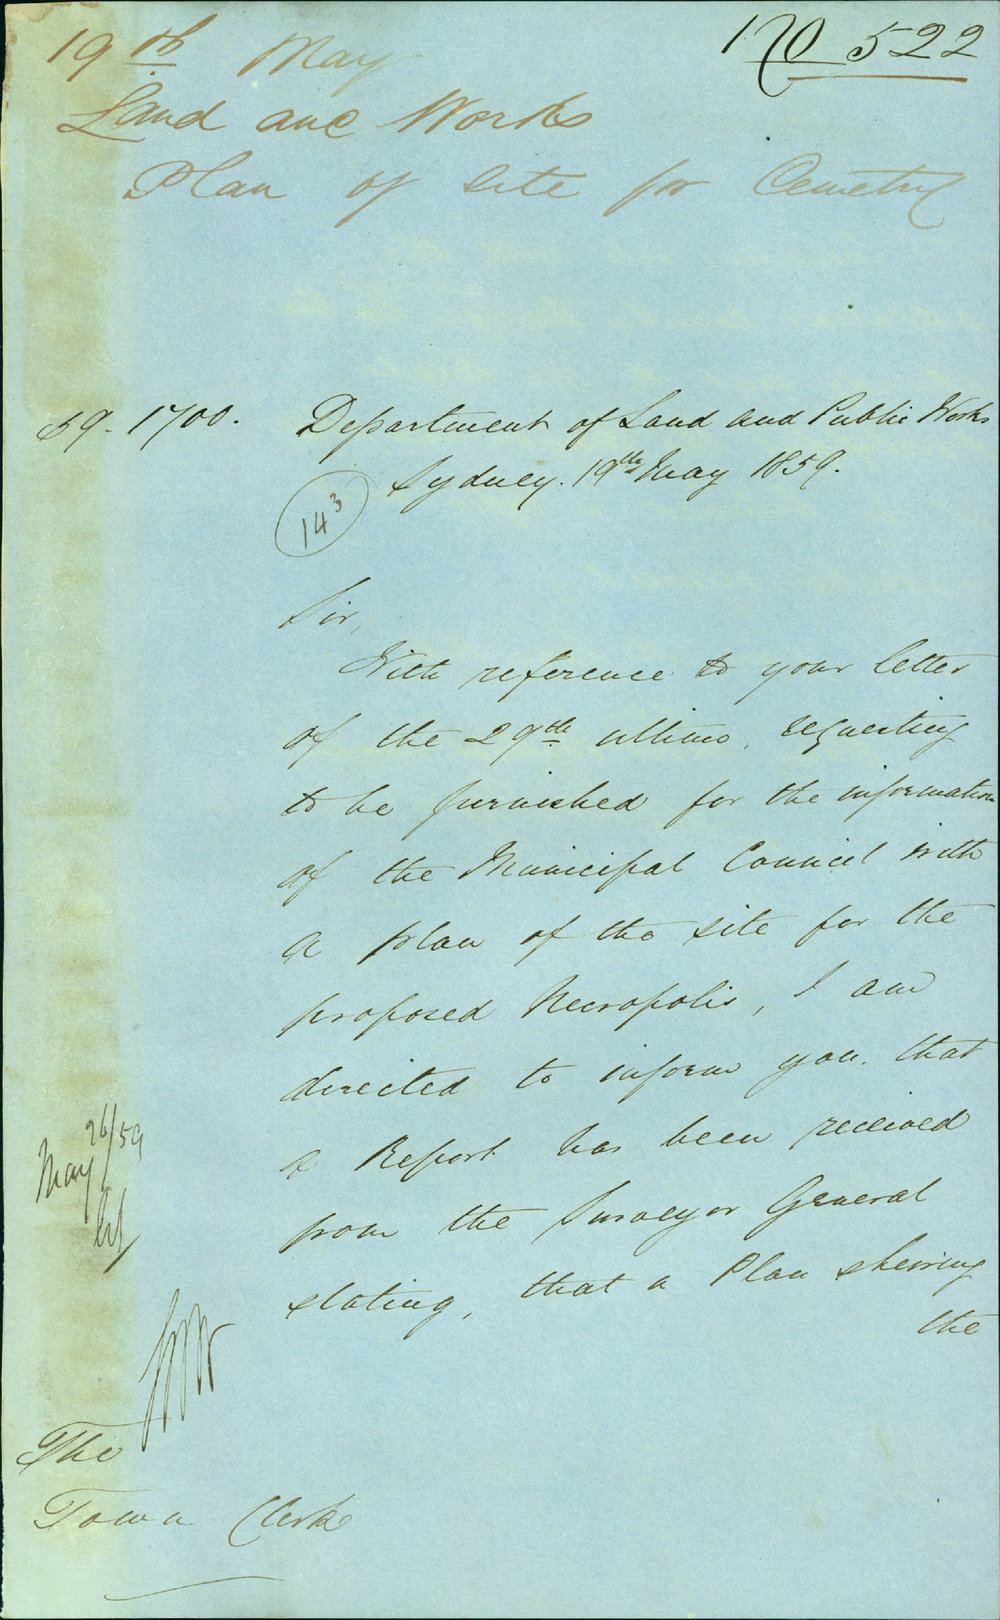 19th May
No 522
Land and Works
Plan of site for Cemetry
59-1700.
Department of Land and Public Works
Sydney. 19th May 1859.
143
Sir,
With reference to your letter
of the 29th ultimo, requesting
to be furnished for the information
of the Municipal Council with
a plan of the site for the
proposed Necropolis, I am
directed to inform you that
a Report has been received
from the Surveyor General
stating, that a Plan shewing
the
May 26/59
The
Town Clerk